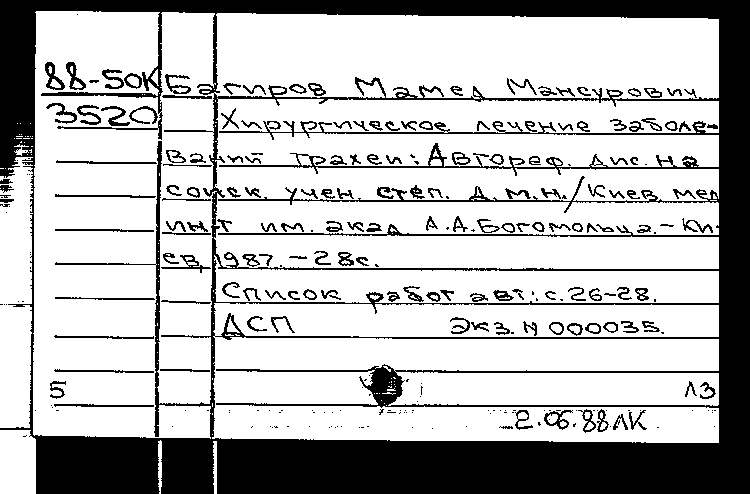 88-50К Багиров Мамед Мансурович
3520 Хирургическое лечение заболе-
ваний трахеи: Автореф. дис. на
соиск. учен. степ. д.м.н./Киев мед
ин-т им. акад А.А.Богомольца.-Ки-
ев, 1987.-28с.
Список работ авт.: с.26-28.
ДСП Экз. N 000035.
5 ЛЗ
2.06.88 ЛК